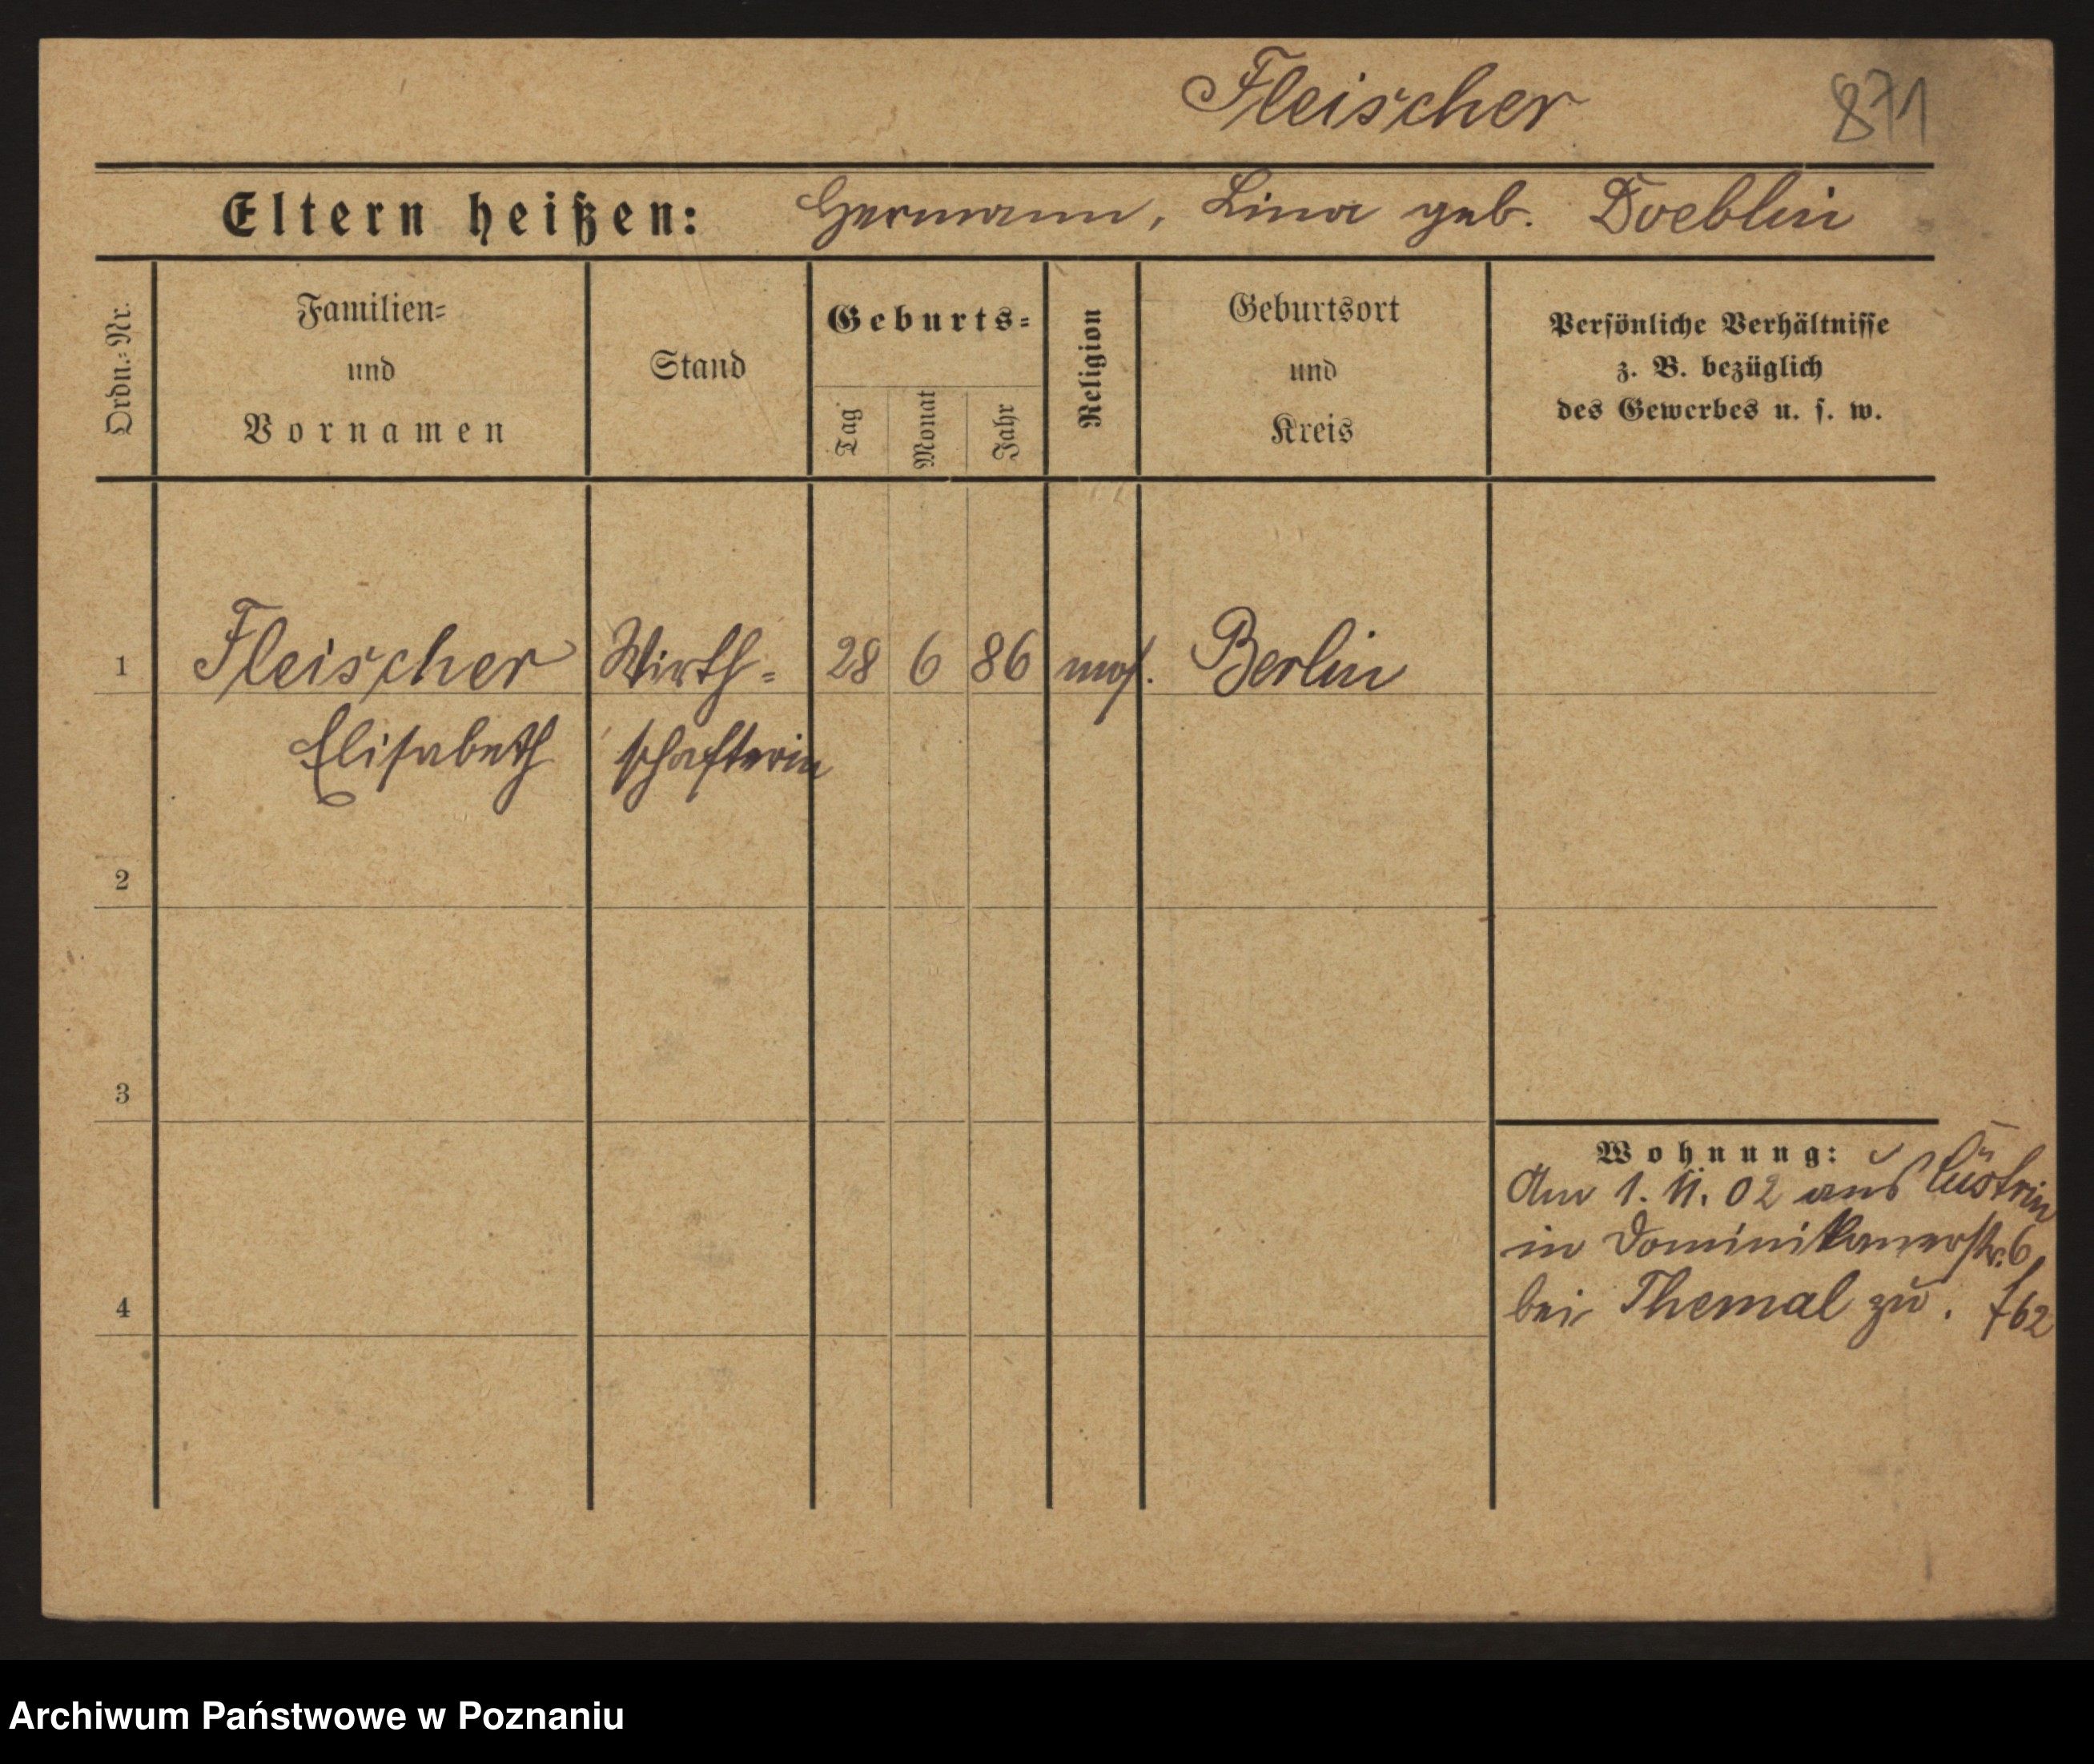 Fleischer
871
Eltern heißen: Hermann, Lina geb. Doeblin
Ordn.=Nr.
Familien=
und
Vornamen
Stand
Geburts=
Tag
Monat
Jahr
Religion
Geburtsort
und
Kreis
Persönliche Verhältnisse
z. B. bezüglich
des Gewerbes u. s. w.
1 Fleischer Wirth= 28 6 86 mos. Berlin
Elisabeth schafterin
2
3
4
Wohnung:
Am 1. 11. 02 aus Cüstrin
in Dominikanerstr. 6
bei Themal zu. f62
Archiwum Państwowe w Poznaniu